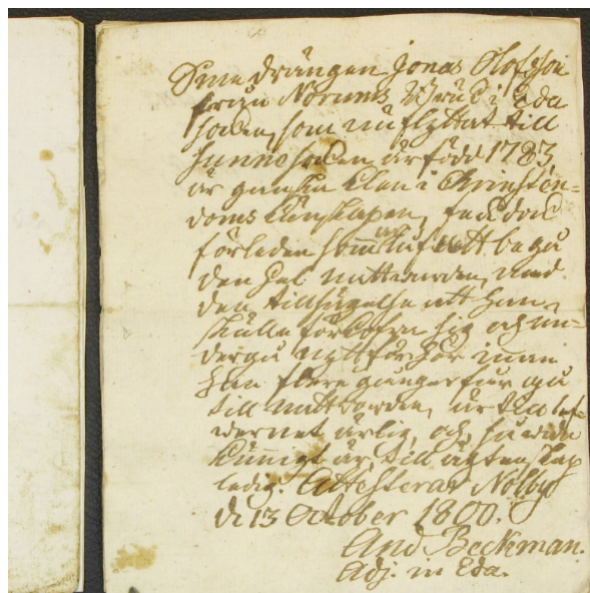 Sme drängen Jonas Olofsson
ifrån Norums Wirud i Eda
socken, som nu flyttat till
Sunne socken är född 1783,
är ganska klen i Christen-
doms kunskapen, fick doc
förleden sommar lof att begå
den hel. nattvarden, med
den tillsägelse att han
skulle förkofra sig och un-
dergå nytt förhör innan
han flere gånger får gå
till nattvarden, är till lef-
vernet ärlig, och så vida
kunnigt är, till ägtenskap
ledig. Attesterar Nolby
d. 13 October 1800.
And Beckman.
Adj. in Eda.